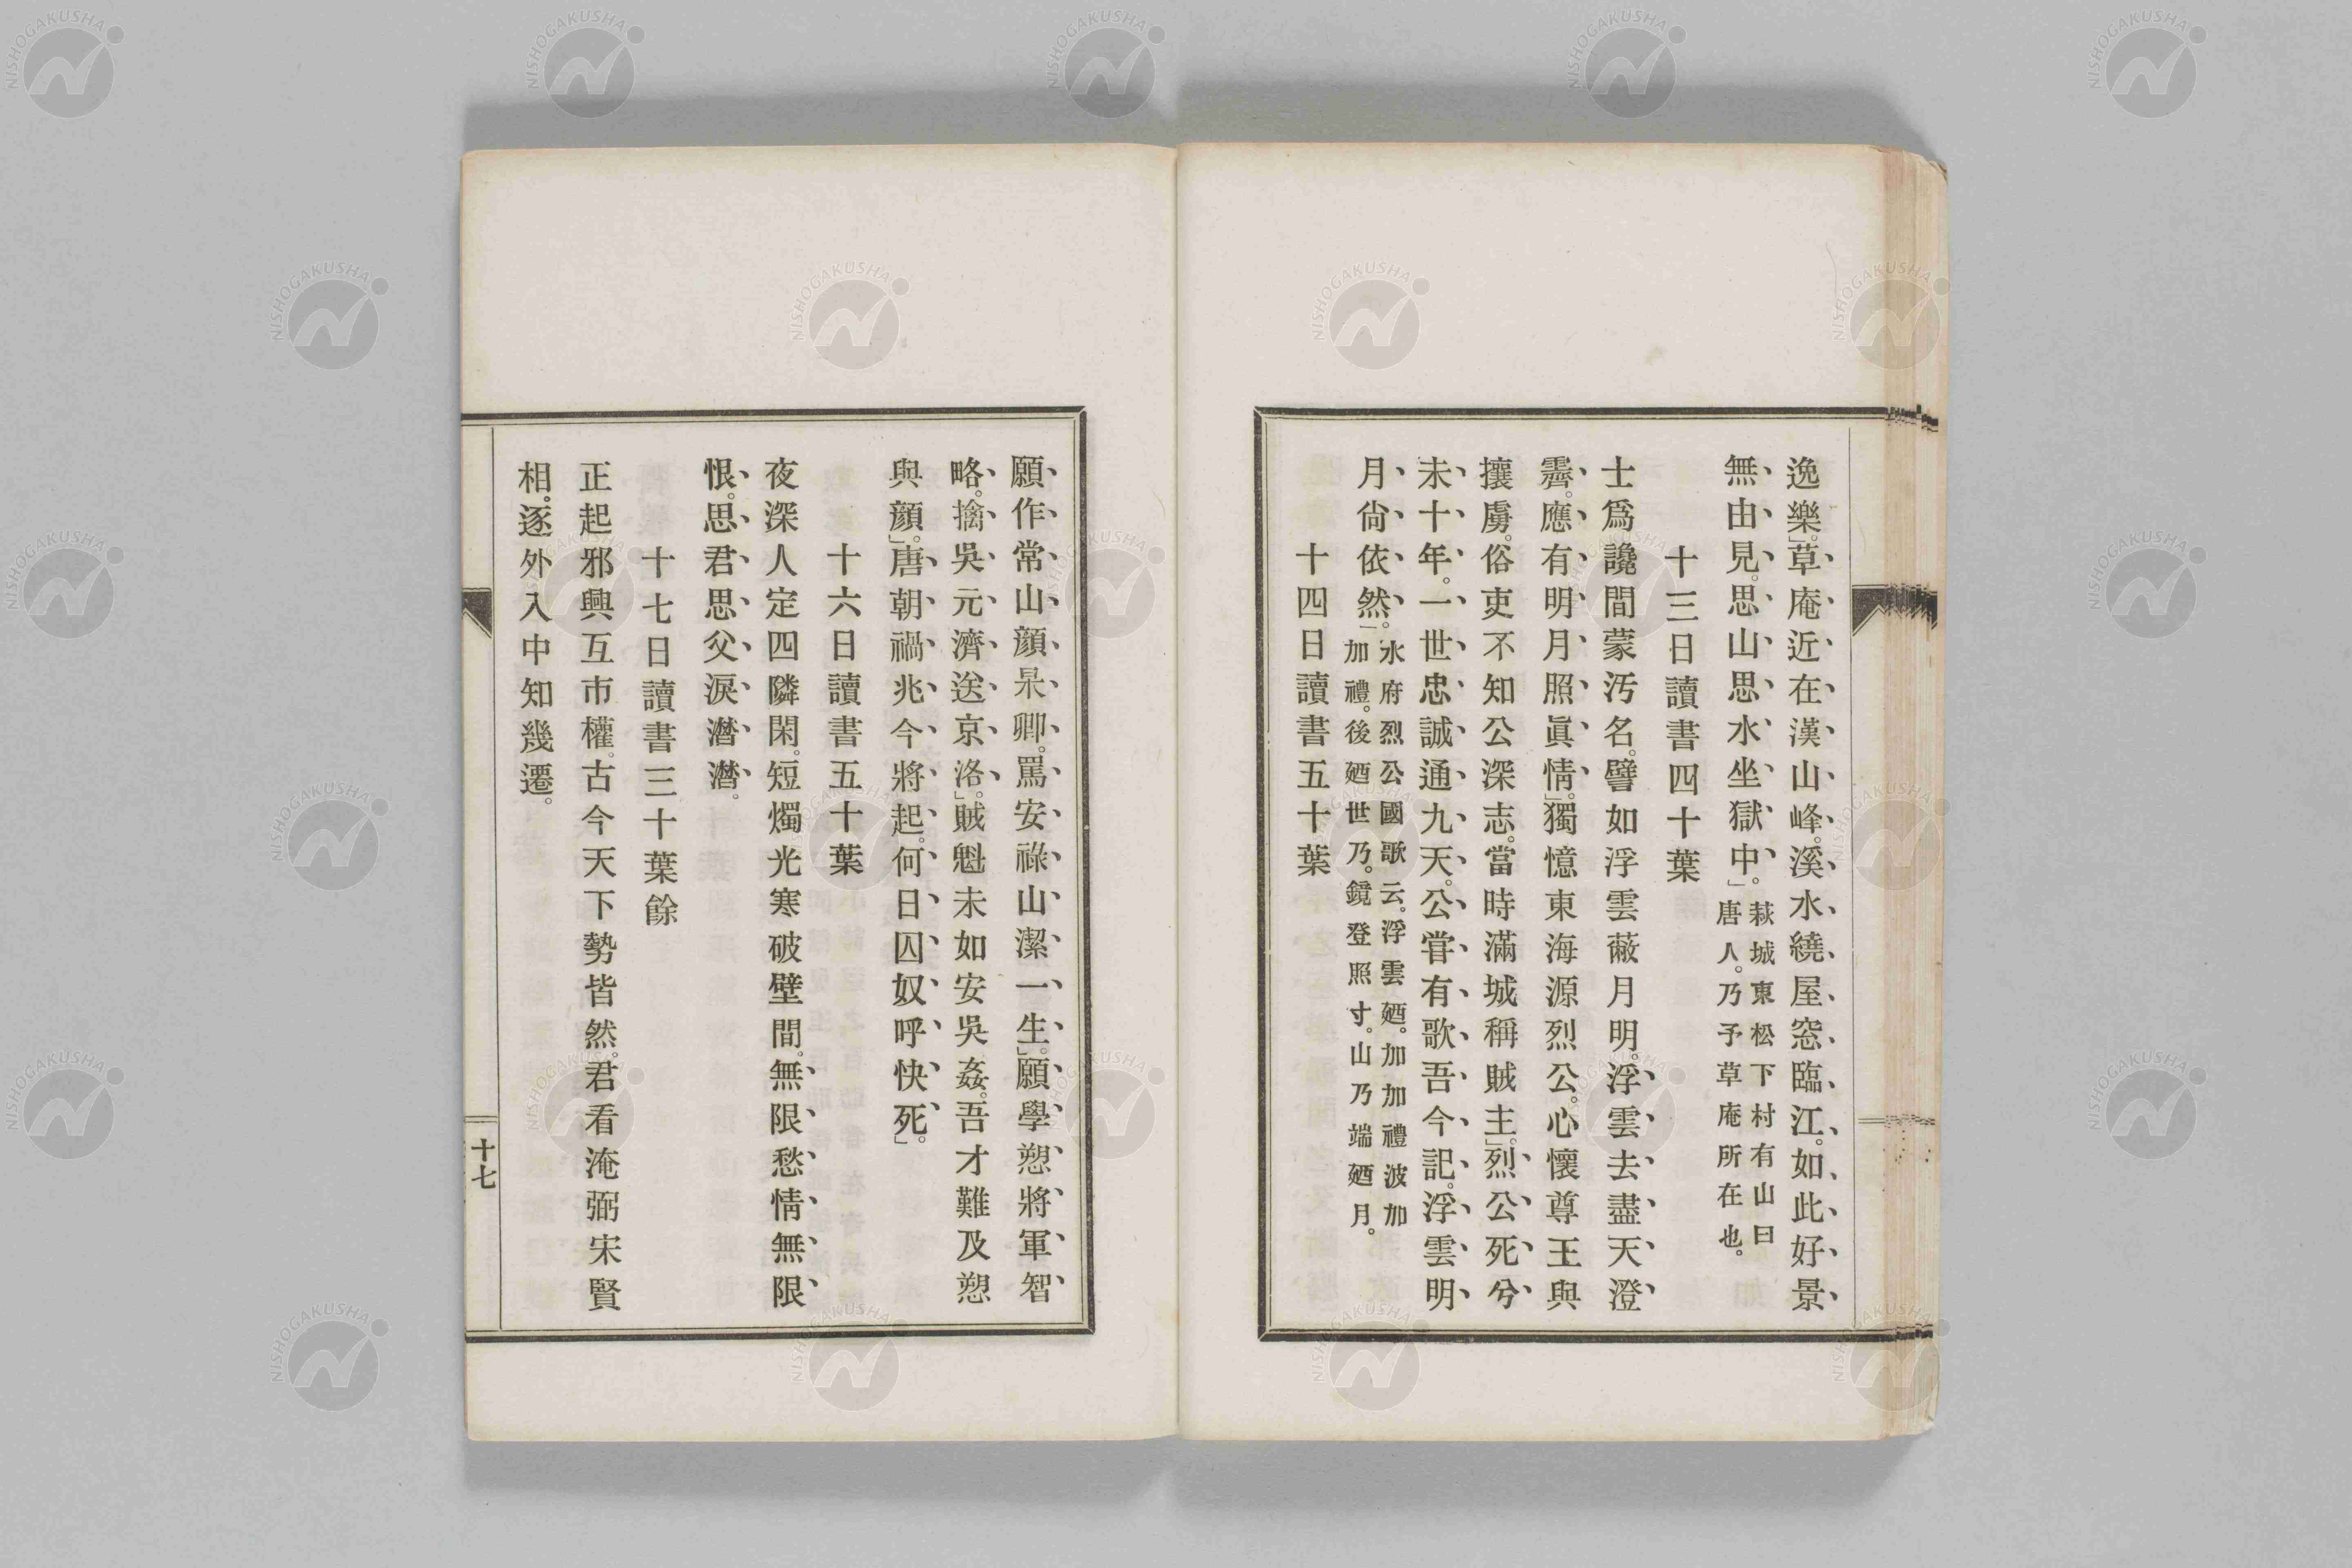 逸樂。」草庵近在漢山峰。溪水繞屋窓臨江。如此好景
無由見。思山思水坐獄中。」萩城東松下村有山曰
唐人。乃予草庵所在也。
十三日讀書四十葉
士爲讒間蒙汚名。譬如浮雲蔽月明。浮雲去盡天澄
霽。應有明月照眞情。」獨憶東海源烈公。心懷尊王與
攘虜。俗吏不知公深志。當時滿城稱賊主。」烈公死兮
未十年。一世忠誠通九天。公嘗有歌吾今記。浮雲明
月尙依然。」水府烈公國歌云。浮雲廼。加加禮波加
加禮。後廼世乃。鏡登照寸。山乃端廼月。
十四日讀書五十葉
願作常山顏杲卿。罵安祿山潔一生。」願學愬將軍智
略。擒吳元濟送京洛。」賊魁未如安吳姦。吾才難及愬
與顏。」唐朝禍兆今將起。何日囚奴呼快死。」
十六日讀書五十葉
夜深人定四隣閑。短燭光寒破壁間。無限愁情無限
恨。思君思父淚潸潸。
十七日讀書三十葉餘
正起邪興互市權。古今天下勢皆然。君看淹弼宋賢
相。逐外入中知幾遷。
十七
NISHOGAKUSHA